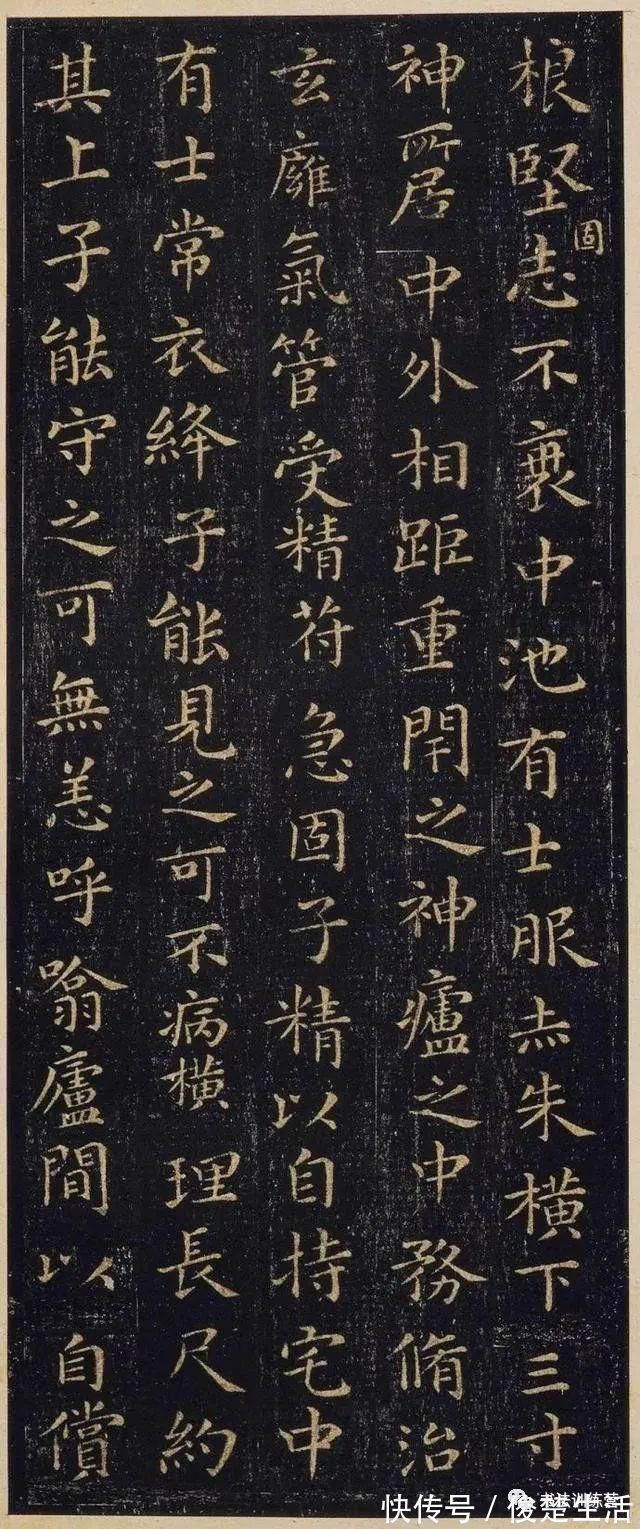 根堅固志不衰中池有士服赤朱橫下三寸
神所居中外相距重閇之神廬之中務脩治
玄廱氣管受精符急固子精以自持宅中
有士常衣絳子能見之可不病橫理長尺約
其上子能守之可無恙呼噏廬間以自償
书法训练营
快传号 / 俊楚生活